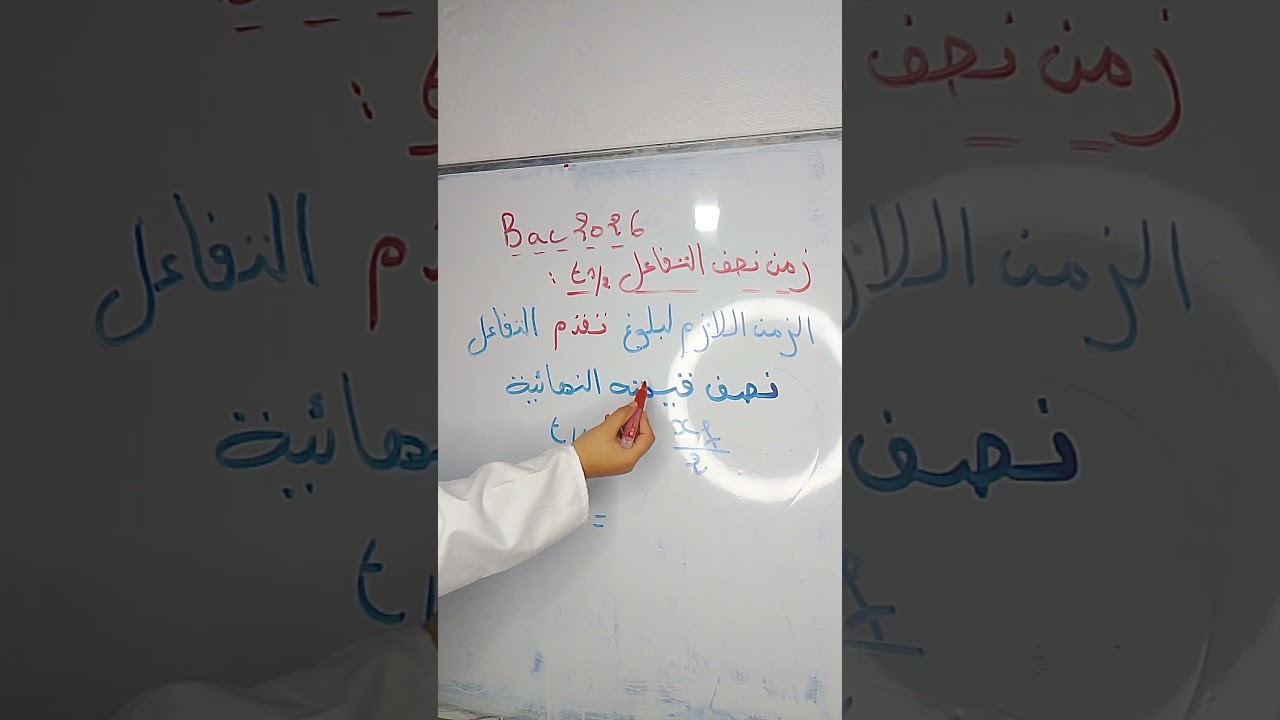 Bac 2026
زمن نصف التفاعل t1/2 :
الزمن اللازم لبلوغ تقدم التفاعل
نصف قيمته النهائية
xf
2
=